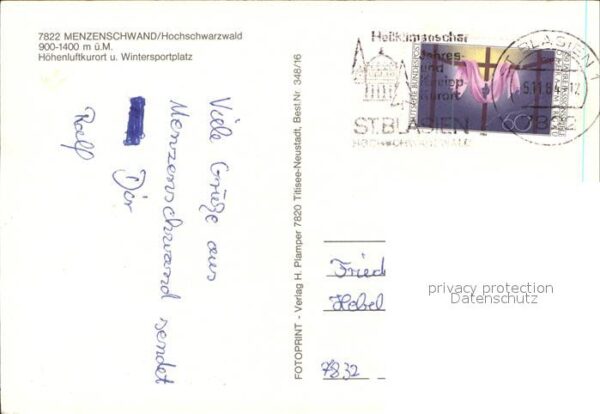 7822 MENZENSCHWAND/Hochschwarzwald
900-1400 m ü.M.
Höhenluftkurort u. Wintersportplatz
Viele Grüße aus
Menzenschwand sendet
Dir
Ralf
FOTOPRINT - Verlag H. Plamper 7820 Titisee-Neustadt, Best.Nr 348/16
Heilklimatischer
Jahres-
und
Kneipp-
kurort
ST.BLASIEN
HOCHSCHWARZWALD
DEUTSCHE BUNDESPOST
60
ST. BLASIEN 1
Fried
Hebel
7832
privacy protection
Datenschutz